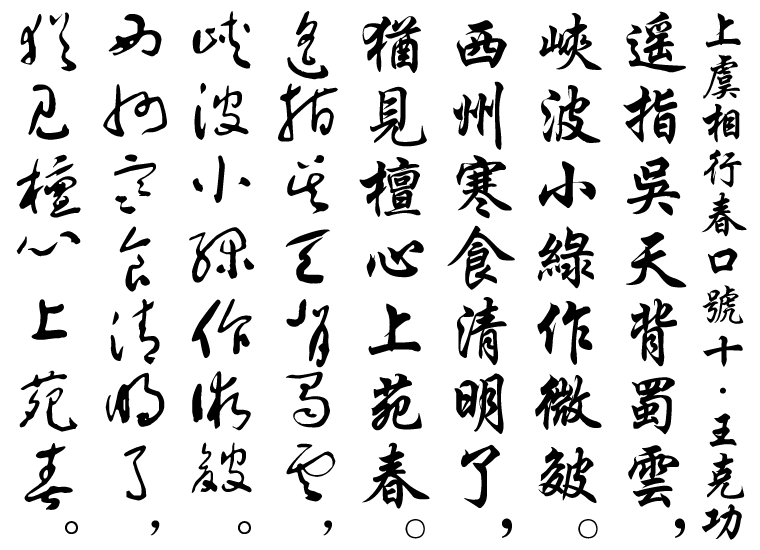 上虞相行春口號十·王克功
遥指吳天背蜀雲,
峽波小綠作微皴。
西州寒食清明了,
猶見檀心上苑春。
遥指吳天背蜀雲,
峽波小綠作微皴。
西州寒食清明了,
猶見檀心上苑春。